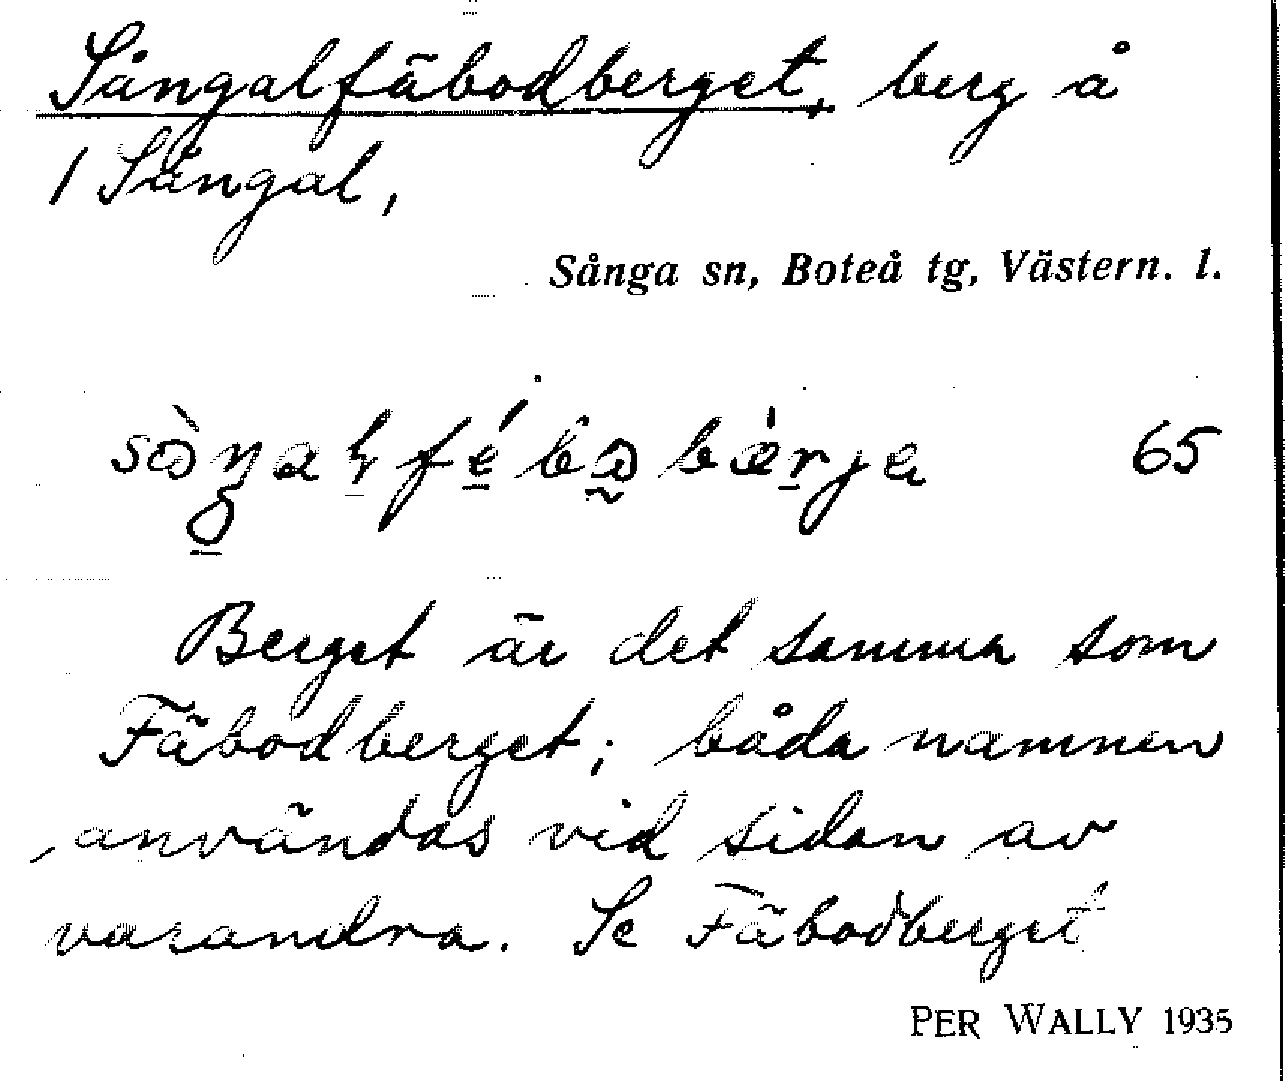 Sångalfäbodberget, berg å
1 Sångal,
Sånga sn, Boteå tg, Västern. l.
65
Berget är det samma som
Fäbodberget; båda namnen
användas vid sidan av
varandra. Se Fäbodberget
PER WALLY 1935